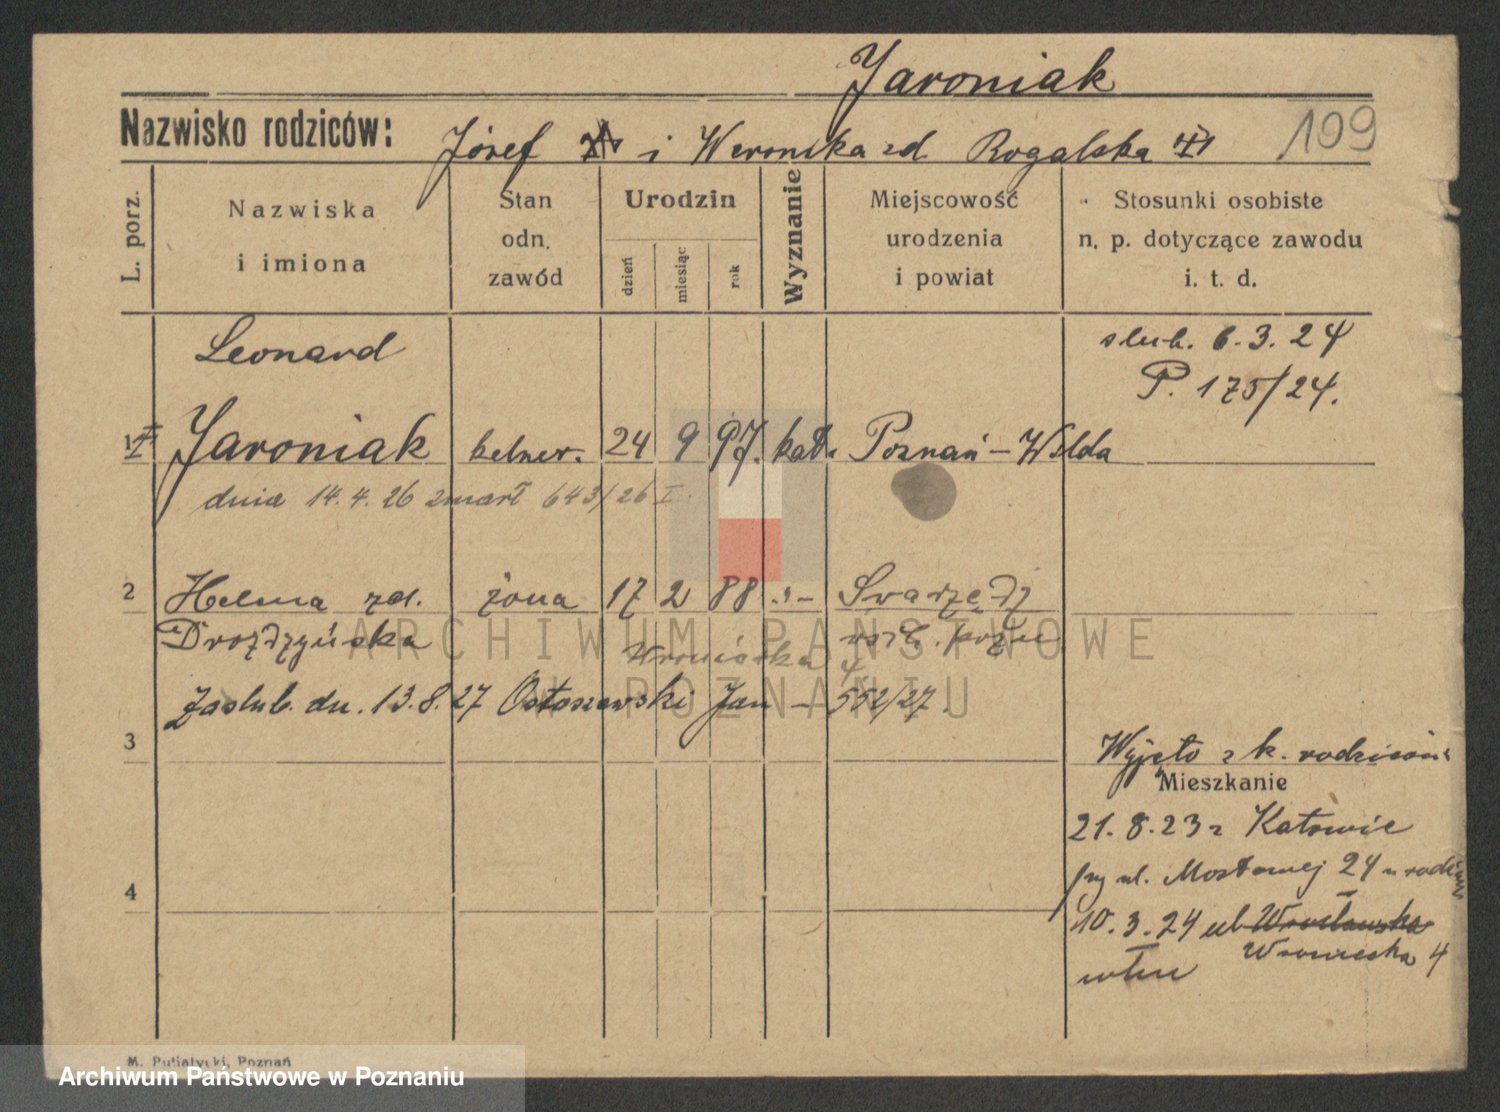 Jaroniak
Nazwisko rodziców: Józef i Weronika zd. Rogalska
109
L. porz.
Nazwiska i imiona
Stan odn. zawód
Urodzin
dzień
miesiąc
rok
Wyznanie
Miejscowość urodzenia i powiat
Stosunki osobiste n. p. dotyczące zawodu i. t. d.
Leonard
ślub. 6.3.24
P. 175/24.
1 Jaroniak kelner. 24 9 97. kat. Poznań – Wilda
dnia 14.4.26 zmarł 643/26 I
2 Helena zd. żona 17 2 88 Swarzędz
Drożdżyńska
Wroniecka 4
Zaślub. dn. 13.8.27 Ostaszewski Jan – 552/27.
3
Wyjęto z k. rodziców
Mieszkanie
21.8.23 z Katowic
przy ul. Mostowej 24
4
10.3.24 ul. Wrocławska
Wroniecka 4
M. Putiatycki, Poznań
ARCHIWUM PAŃSTWOWE
W POZNANIU
Archiwum Państwowe w Poznaniu